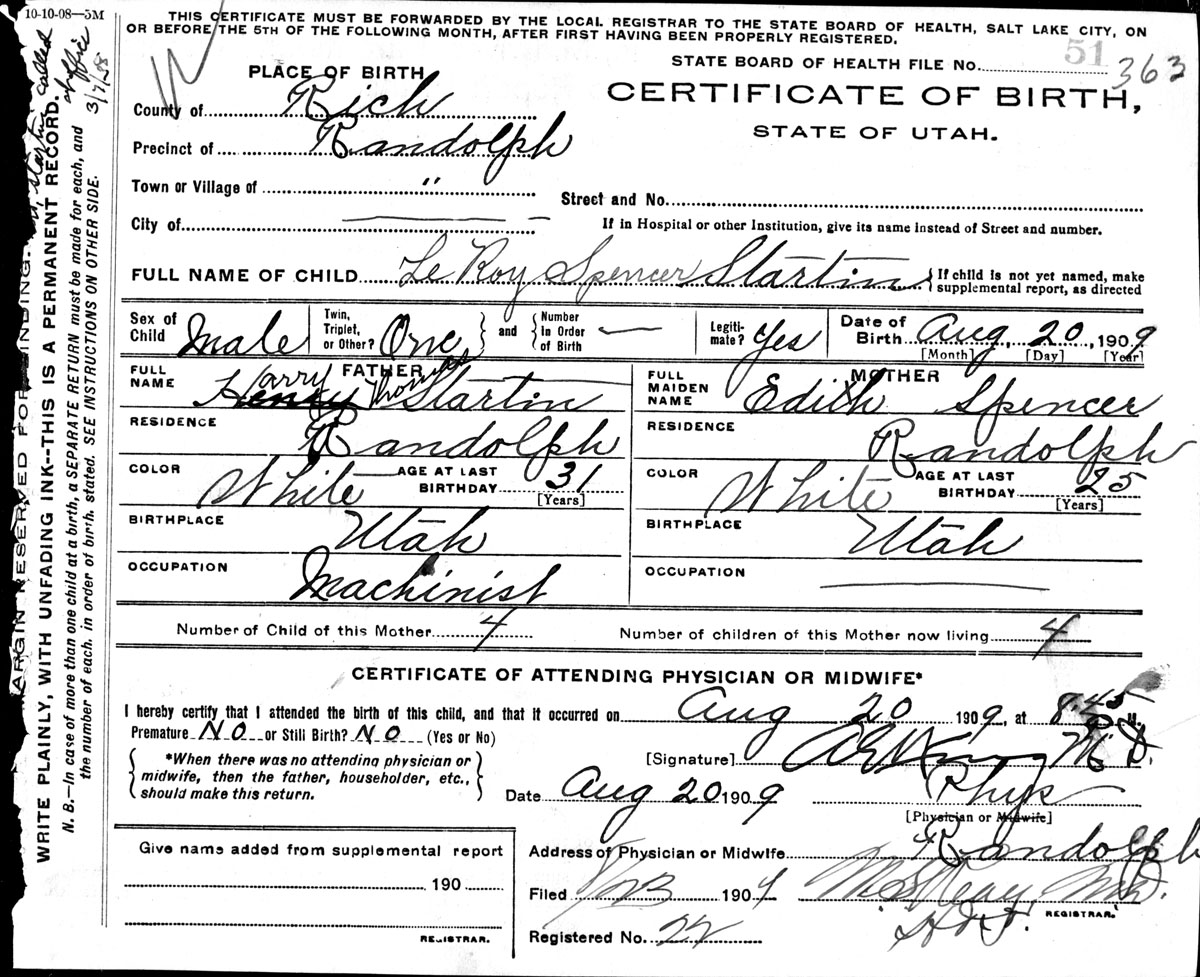 10-10-08—3M
THIS CERTIFICATE MUST BE FORWARDED BY THE LOCAL REGISTRAR TO THE STATE BOARD OF HEALTH, SALT LAKE CITY, ON
OR BEFORE THE 5TH OF THE FOLLOWING MONTH, AFTER FIRST HAVING BEEN PROPERLY REGISTERED.
STATE BOARD OF HEALTH FILE NO. 51 363
PLACE OF BIRTH
CERTIFICATE OF BIRTH,
STATE OF UTAH.
County of Rich
Precinct of Randolph
Town or Village of "
Street and No.
City of —
If in Hospital or other Institution, give its name instead of Street and number.
FULL NAME OF CHILD Le Roy Spencer Startin { If child is not yet named, make
supplemental report, as directed
Sex of Child Male
Twin, Triplet, or Other? One } and { Number In Order of Birth —
Legitimate? Yes
Date of Birth Aug 20, 1909
[Month] [Day] [Year]
FATHER
FULL NAME Henry Harry Thomas Startin
MOTHER
FULL MAIDEN NAME Edith Spencer
RESIDENCE Randolph
RESIDENCE Randolph
COLOR White AGE AT LAST BIRTHDAY 31 [Years]
COLOR White AGE AT LAST BIRTHDAY 25 [Years]
BIRTHPLACE Utah
BIRTHPLACE Utah
OCCUPATION Machinist
OCCUPATION —
Number of Child of this Mother 4 Number of children of this Mother now living 4
CERTIFICATE OF ATTENDING PHYSICIAN OR MIDWIFE*
I hereby certify that I attended the birth of this child, and that it occurred on Aug 20 1909, at 8:45 M.
Premature No or Still Birth? No (Yes or No)
{ *When there was no attending physician or
midwife, then the father, householder, etc.,
should make this return. }
[Signature] M.D.
Date Aug 20 1909 Phys
[Physician or Midwife]
Give name added from supplemental report
190
REGISTRAR.
Address of Physician or Midwife Randolph
Filed 190
REGISTRAR.
Registered No. 22
MARGIN RESERVED FOR BINDING.
WRITE PLAINLY, WITH UNFADING INK--THIS IS A PERMANENT RECORD.
N. B.—In case of more than one child at a birth, a SEPARATE RETURN must be made for each, and
the number of each, in order of birth, stated. SEE INSTRUCTIONS ON OTHER SIDE.
Startin called
at office
3/7/58